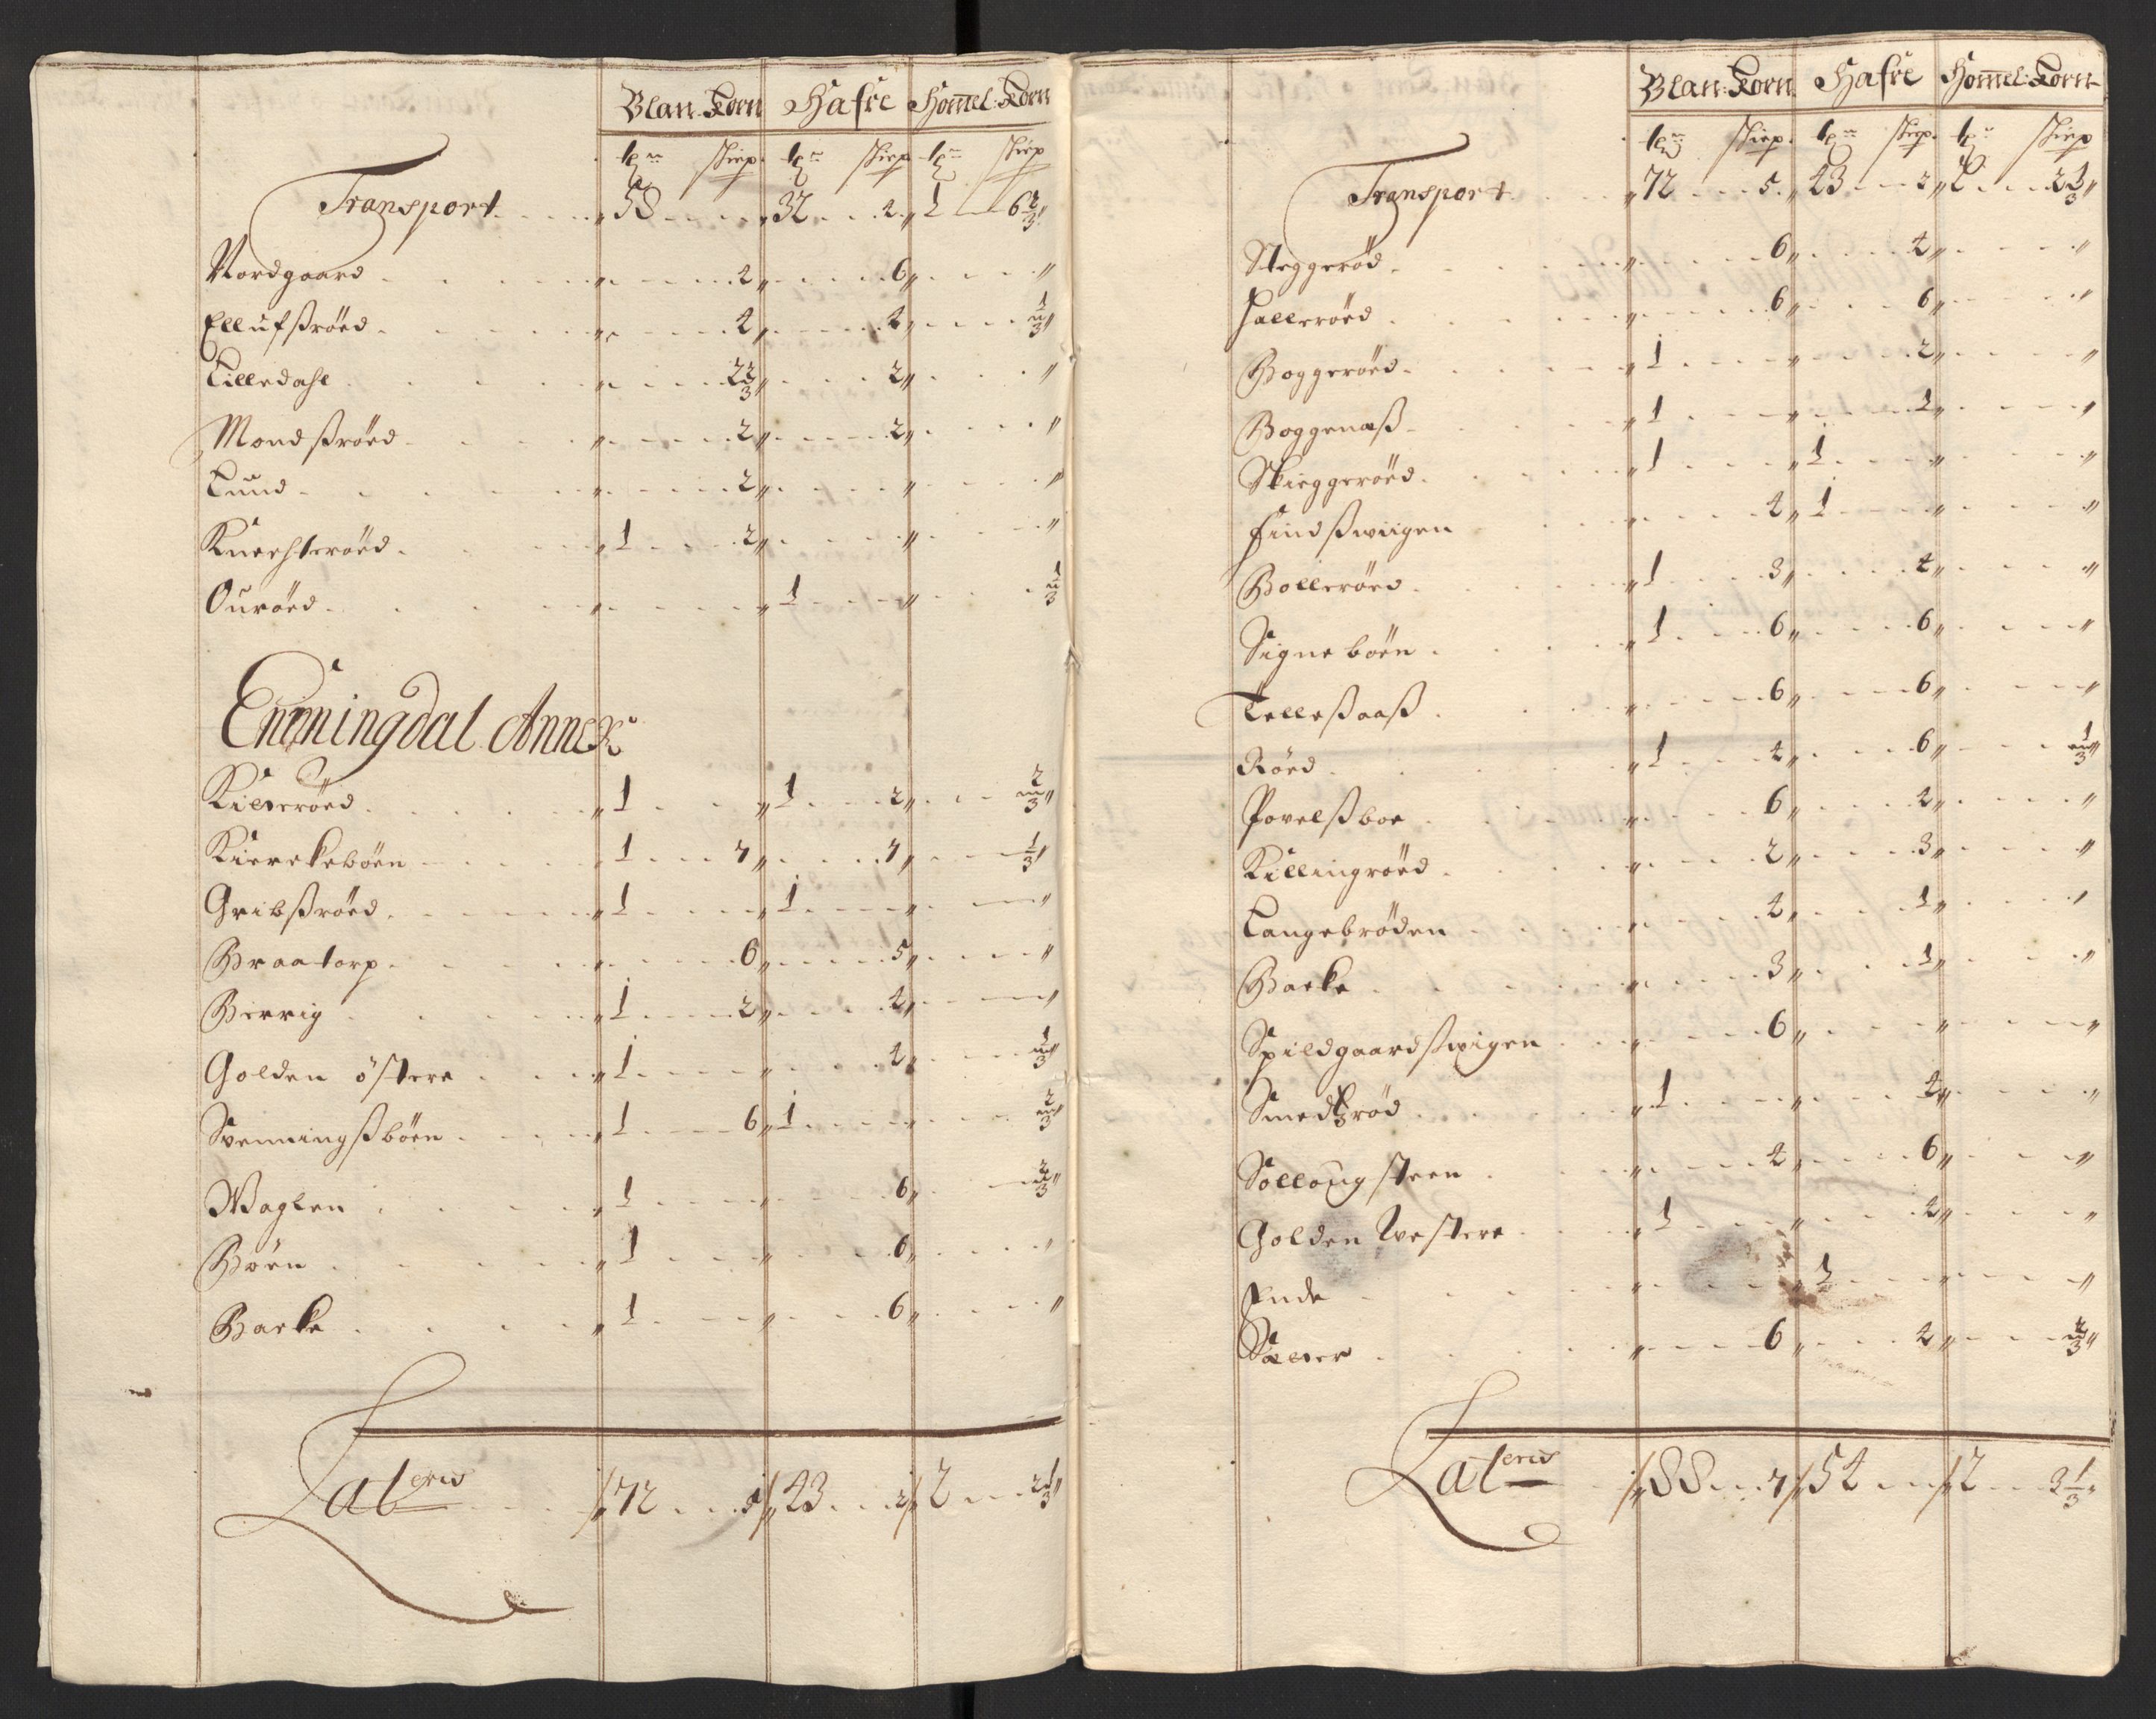 Blan: Korn Hafre Hom̄el: Korn
tr skiep tr skiep tr skiep
Transport 58 32 2 1 6 2/3
Nordgaard 2 6
Ellufsröed 4 4 1/3
Lilledahl 2 2/3 2
Mondsröed 2 2
Lund 2
Knechteröed 1 2
Ouröed 1 1/3
Enningdal Annex
Killeröed 1 1 2 2/3
Kierekeböen 1 7 7 1/3
Gribsröed 1 1
Braatorp 6 5
Berrig 1 2 4
Golden östere 1 4 1/3
Svenningsböen 1 6 1 2/3
Waglen 1 6 2/3
Böen 1 6
Barke 1 6
Lateris 72 5 43 2 2 2 1/3
Blan: Korn Hafre Hom̄el: Korn
tr skiep tr skiep tr skiep
Transport 72 5 43 2 2 2 1/3
Steggeröd 6 4
Halleröed 6 6
Boggeröed 1 2
Boggenæß 1 1
Skieggeröed 1 1
Findswiigen 4 1
Bolleröed 1 3 4
Signeböen 1 6 6
Tellesaaß 6 6
Röed 1 4 6 1/3
Povelsboe 6 2
Killingröed 2 3
Langebröden 4 1
Barke 3 1
Spildgaardswigen 6
Smedßröd 1 4
Sollougsteen 4 6
Golden Westere 1 2
Ende 1
Sæter 6 4 2/3
Lateris 88 7 54 2 3 1/3